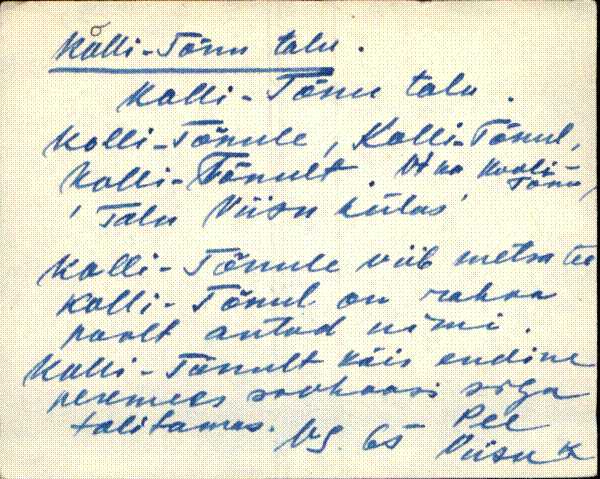 Kolli-Tõnu talu.
Kolli-Tõnu talu.
Kolli-Tõnule, Kolli-Tõnul,
Kolli-Tõnult. Vt ka Kooli-
Tõnu
'Talu Viisu külas'
Kolli-Tõnule viib metsa tee
Kolli-Tõnul on rahva
poolt antud nimi.
Kolli-Tõnult käis endine
peremees sookoasi siga
talitamas.
VS. 65 Pee
Viisu k